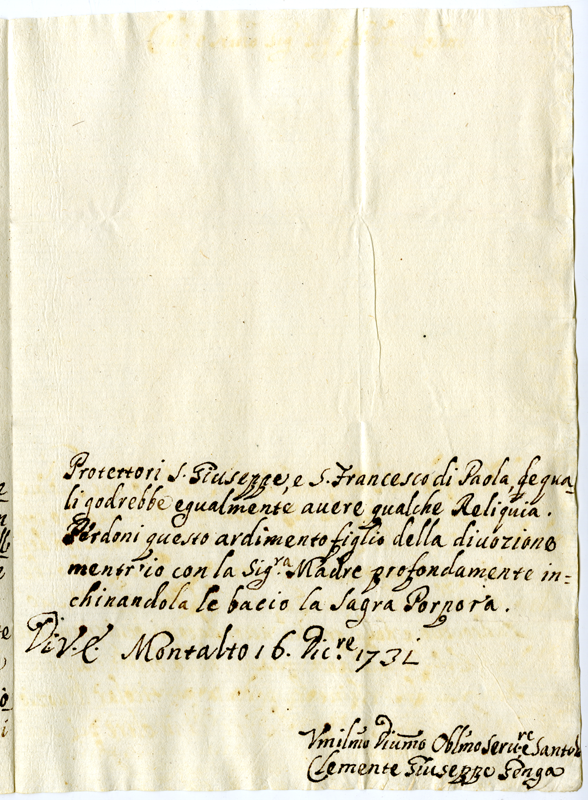 Protettori S. Giuseppe, e S. Francesco di Paola, de qua=
li godrebbe egualmente avere qualche Reliquia.
Perdoni questo ardimento figlio della divozione
mentr'io con la Sig.ra Madre profondamente in=
chinandola le bacio la Sagra Porpora.
Di V. E. Montalto 16. Dic.re 1731
Vmilmo Diumo Oblmo Serv.re e Santol
Clemente Giuseppe Fenga